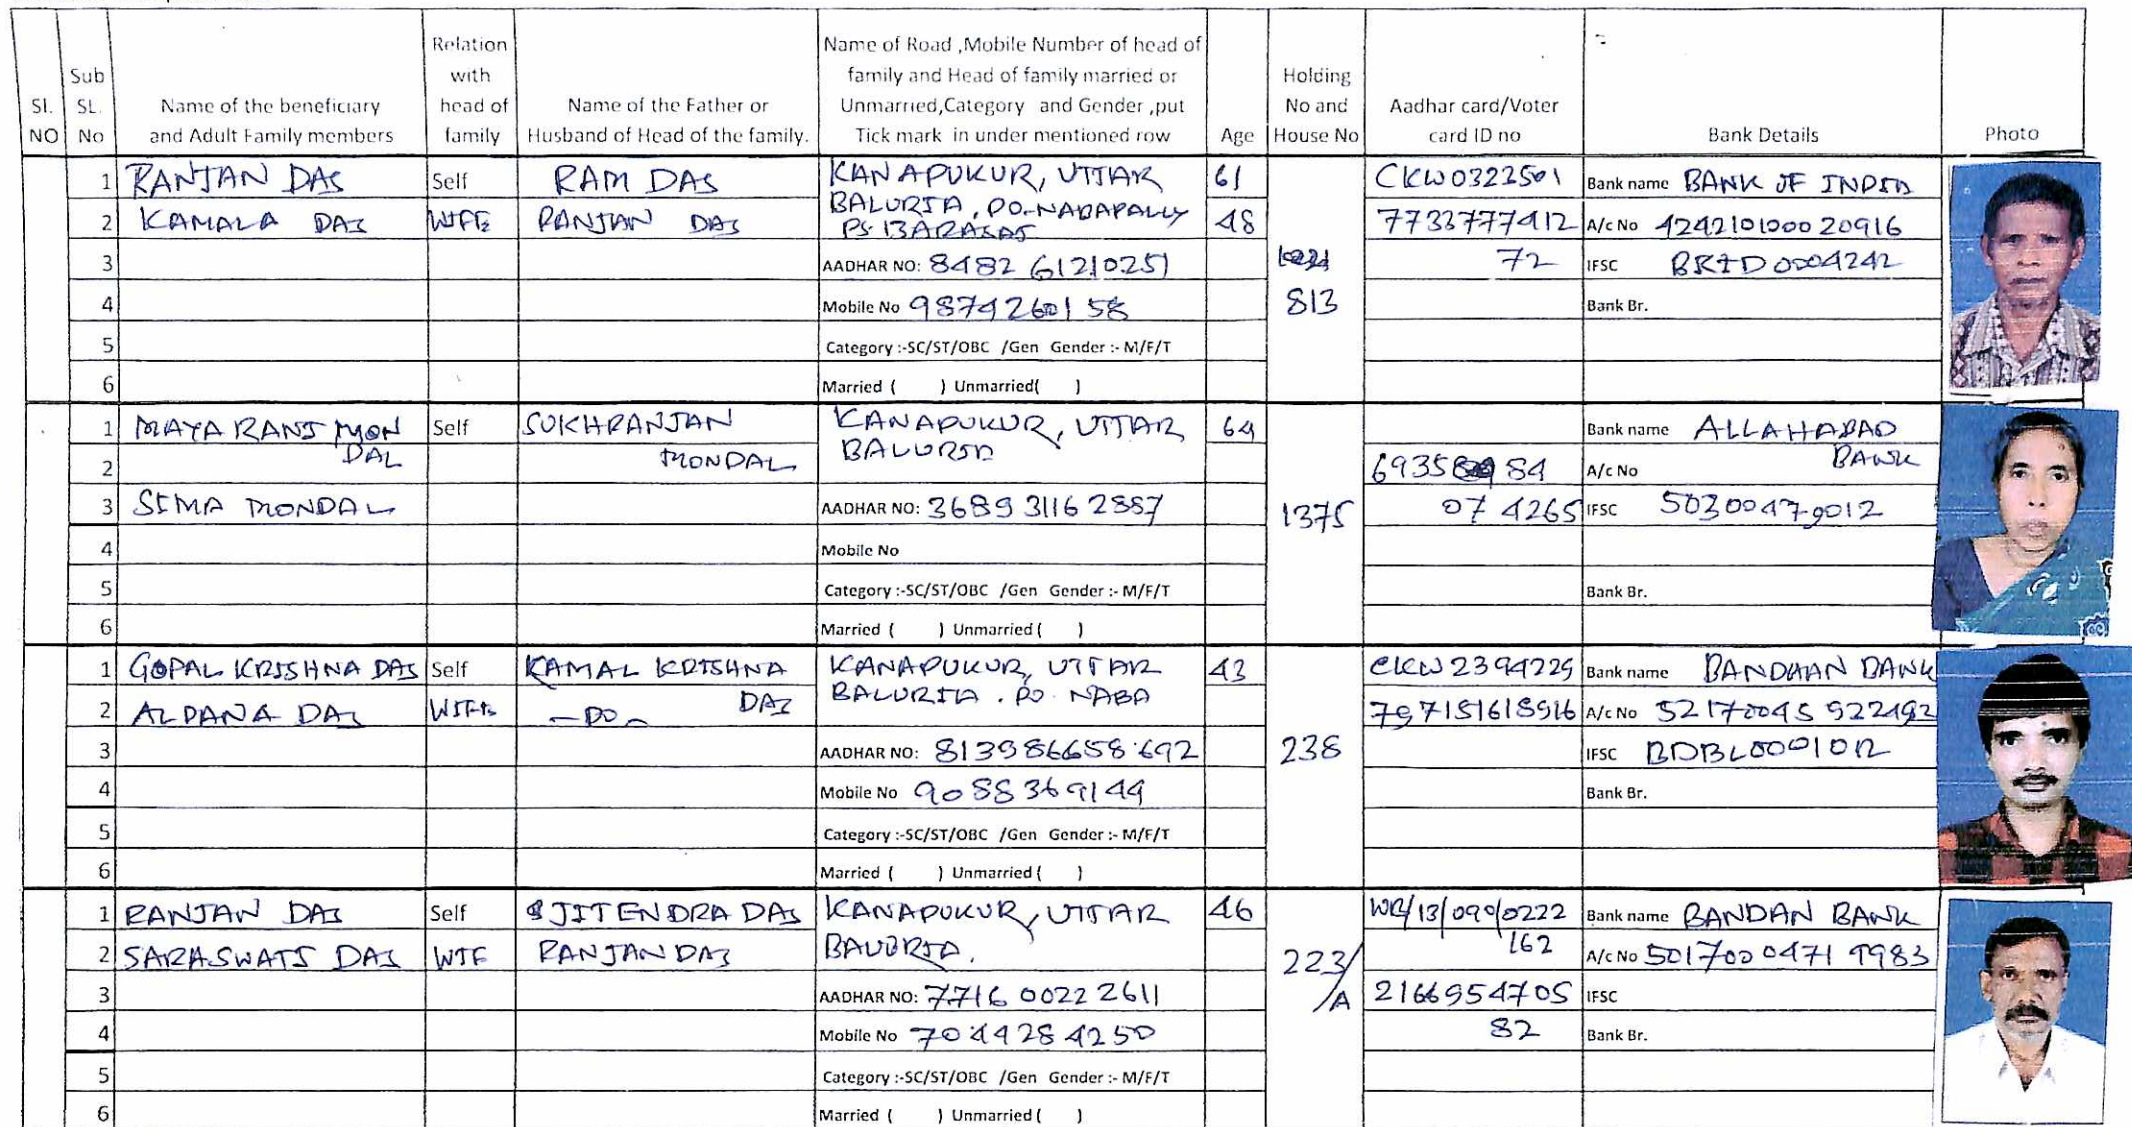 Sl. NO
Sub SL. No
Name of the beneficiary and Adult Family members
Relation with head of family
Name of the Father or Husband of Head of the family.
Name of Road ,Mobile Number of head of family and Head of family married or Unmarried,Category and Gender ,put Tick mark in under mentioned row
Age
Holding No and House No
Aadhar card/Voter card ID no
Bank Details
Photo
1 RANJAN DAS Self RAM DAS KANAPUKUR, UTTAR 61 CKW0323501 Bank name BANK OF INDIA
BALURIA, PO-NABAPALLY
2 KAMALA DAS WIFE RANJAN DAS PS BARASAT 48 7733777412 A/c No 424210100020916
3 AADHAR NO: 8482 61210251 72 IFSC BKID0004242
4 Mobile No 9874260158 813 Bank Br.
5 Category :-SC/ST/OBC /Gen Gender :- M/F/T
6 Married ( ) Unmarried( )
1 MAYA RANI MON Self SUKHRANJAN KANAPUKUR, UTTAR 64 Bank name ALLAHABAD
DAL MONDAL BALURIA BANK
2 84 A/c No
3 SIMA MONDAL AADHAR NO: 3689 3116 2887 1375 07 4265 IFSC 50300479012
4 Mobile No
5 Category :-SC/ST/OBC /Gen Gender :- M/F/T Bank Br.
6 Married ( ) Unmarried ( )
1 GOPAL KRISHNA DAS Self KAMAL KRISHNA KANAPUKUR, UTTAR 43 CKW2394229 Bank name BANDHAN BANK
DAS BALURIA. PO NABA
2 ALPANA DAS WIFE -DO- 797151618916 A/c No 52170045 922492
3 AADHAR NO: 813986658692 238 IFSC BDBL0001012
4 Mobile No 9088369144 Bank Br.
5 Category :-SC/ST/OBC /Gen Gender :- M/F/T
6 Married ( ) Unmarried ( )
1 RANJAN DAS Self JITENDRA DAS KANAPUKUR, UTTAR 46 WB/13/090/0222 Bank name BANDAN BANK
162
2 SARASWATI DAS WIF RANJAN DAS BALURIA. 223/ A/c No 50170004719983
3 AADHAR NO: 7716 0022 2611 /A 2166954705 IFSC
4 Mobile No 7044284250 82 Bank Br.
5 Category :-SC/ST/OBC /Gen Gender :- M/F/T
6 Married ( ) Unmarried ( )